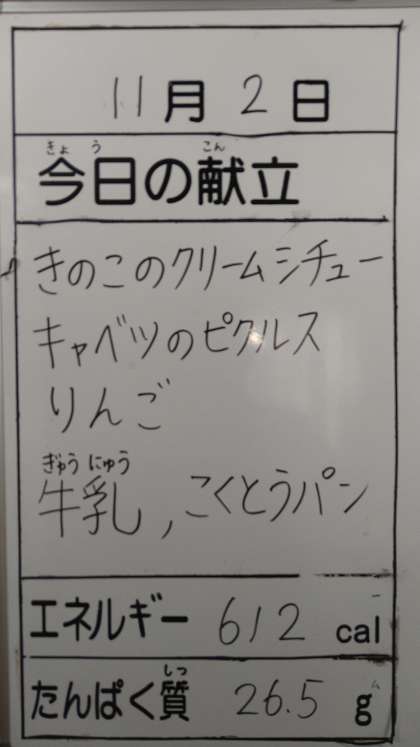 11月2日
きょう こん
今日の献立
きのこのクリームシチュー
キャベツのピクルス
りんご
ぎゅう にゅう
牛乳,こくとうパン
エネルギー 612 cal
しつ
たんぱく質 26.5 g